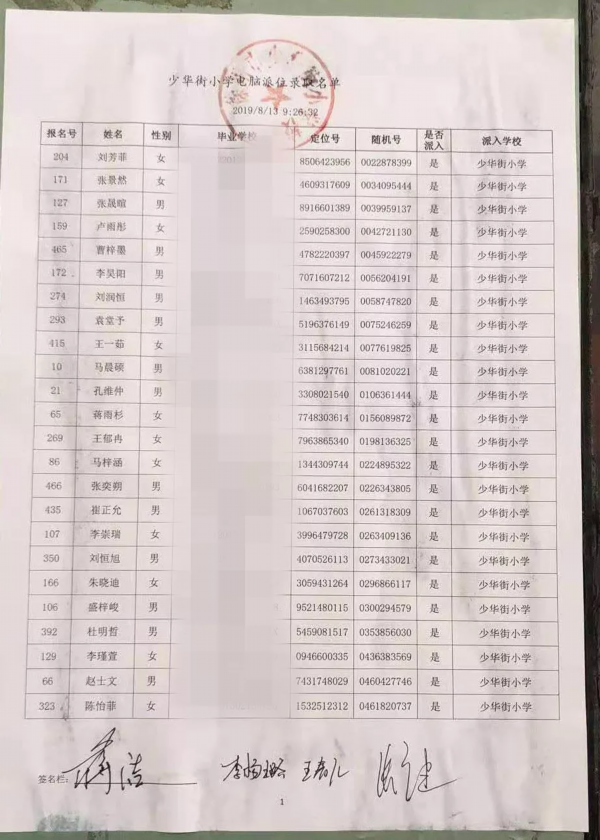 少华街小学电脑派位录取名单
2019/8/13 9:26:32
报名号 姓名 性别 毕业学校 定位号 随机号 是否派入 派入学校
204 刘芳菲 女 8506423956 0022878399 是 少华街小学
171 张景然 女 4609317609 0034095444 是 少华街小学
127 张晟暄 男 8916601389 0039959137 是 少华街小学
159 卢雨彤 女 2590258300 0042721130 是 少华街小学
465 曹梓墨 男 4782220397 0045922279 是 少华街小学
172 李昊阳 男 7071607212 0056204191 是 少华街小学
274 刘润恒 男 1463493795 0058747820 是 少华街小学
293 袁堂予 男 5196376149 0075246259 是 少华街小学
415 王一茹 女 3115684214 0077619825 是 少华街小学
10 马晨硕 男 6381297761 0081020221 是 少华街小学
21 孔维仲 男 3308021540 0106361444 是 少华街小学
65 蒋雨杉 女 7748303614 0156089872 是 少华街小学
269 王郁冉 女 7963865340 0198136325 是 少华街小学
86 马梓涵 女 1344309744 0224895322 是 少华街小学
466 张奕朔 男 6041682207 0226343805 是 少华街小学
435 崔正允 男 1067037603 0261318309 是 少华街小学
107 李崇瑞 女 3996479728 0263409136 是 少华街小学
350 刘恒旭 男 4070526113 0273433021 是 少华街小学
166 朱晓迪 女 3059431264 0296866117 是 少华街小学
106 盛梓峻 男 9521480115 0300294579 是 少华街小学
392 杜明哲 男 5459081517 0353856030 是 少华街小学
129 李瑾萱 女 0946600335 0436383569 是 少华街小学
66 赵士文 男 7431748029 0460427746 是 少华街小学
323 陈怡菲 女 1532512312 0461820737 是 少华街小学
签名栏:
1